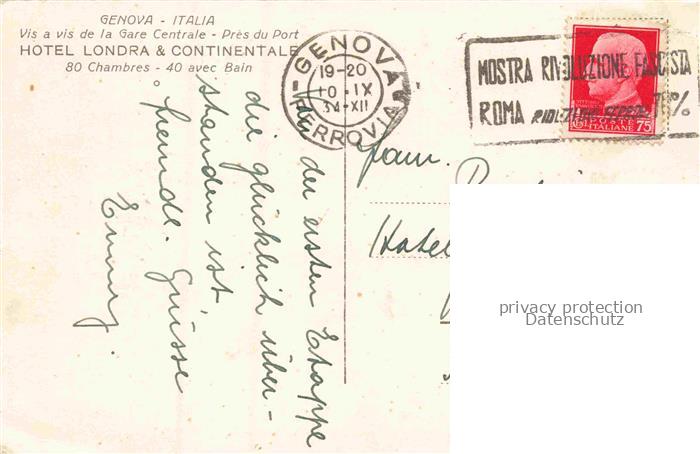 GENOVA - ITALIA
Vis a vis de la Gare Centrale - Près du Port
HOTEL LONDRA & CONTINENTALE
80 Chambres - 40 avec Bain
GENOVA
19-20
10·IX
34·XII
FERROVIA
MOSTRA RIVOLUZIONE FASCISTA
ROMA
%
POSTE
ITALIANE 75
Von der ersten Etappe
die glücklich über-
standen ist,
freundl. Grüsse
Emmy.
Fam.
Hotel
privacy protection
Datenschutz